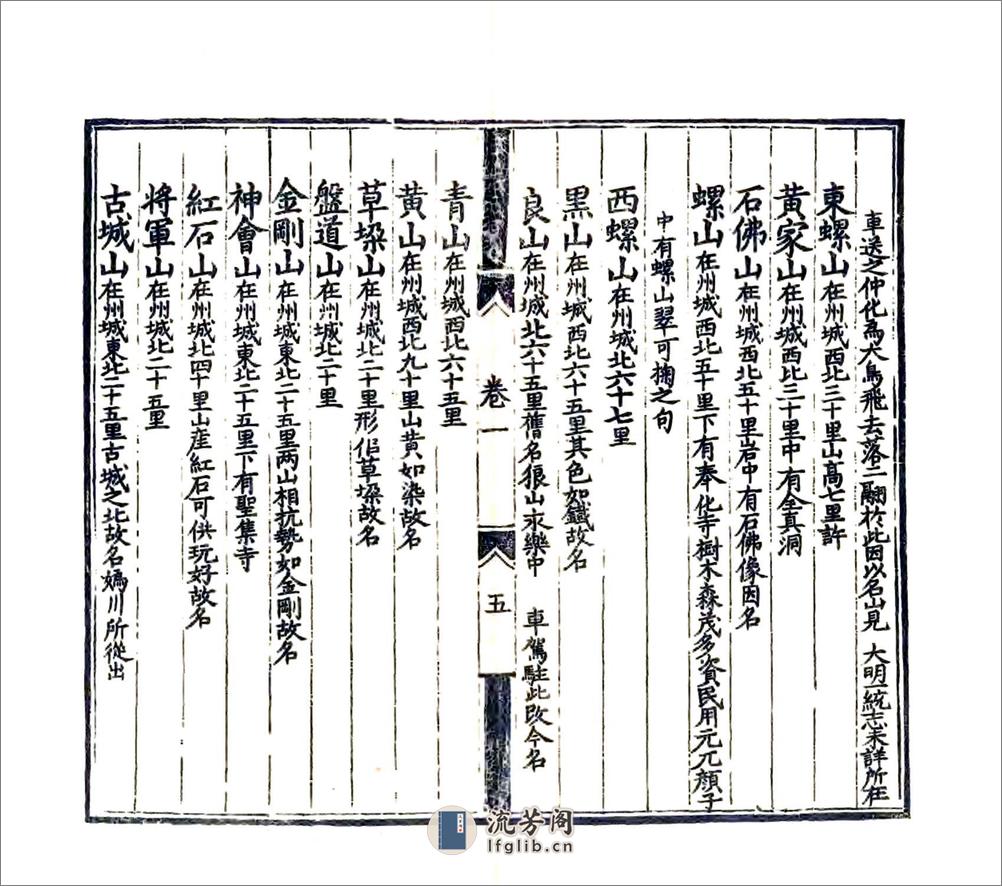 車送之仲化爲大鳥飛去落二翮於此因以名山見 大明一統志未詳所在
東螺山在州城西北三十里山高七里許
黄家山在州城西北三十里中有全真洞
石佛山在州城西北五十里岩中有石佛像因名
螺山在州城西北五十里下有奉化寺樹木森茂多資民用元兀顏子
中有螺山翠可掬之句
西螺山在州城北六十七里
黑山在州城西北六十五里其色如鐵故名
良山在州城北六十五里舊名狼山永樂中 車駕駐此改今名
卷一
五
青山在州城西北六十五里
黄山在州城西北九十里山黄如染故名
草垜山在州城北二十里形作草垜故名
盤道山在州城北二十里
金剛山在州城東北二十五里两山相抗勢如金剛故名
神會山在州城東北二十五里下有聖集寺
紅石山在州城北四十里山産紅石可供玩好故名
將軍山在州城北二十五里
古城山在州城東北二十五里古城之北故名媯川所從出
流芳阁
lfglib.cn